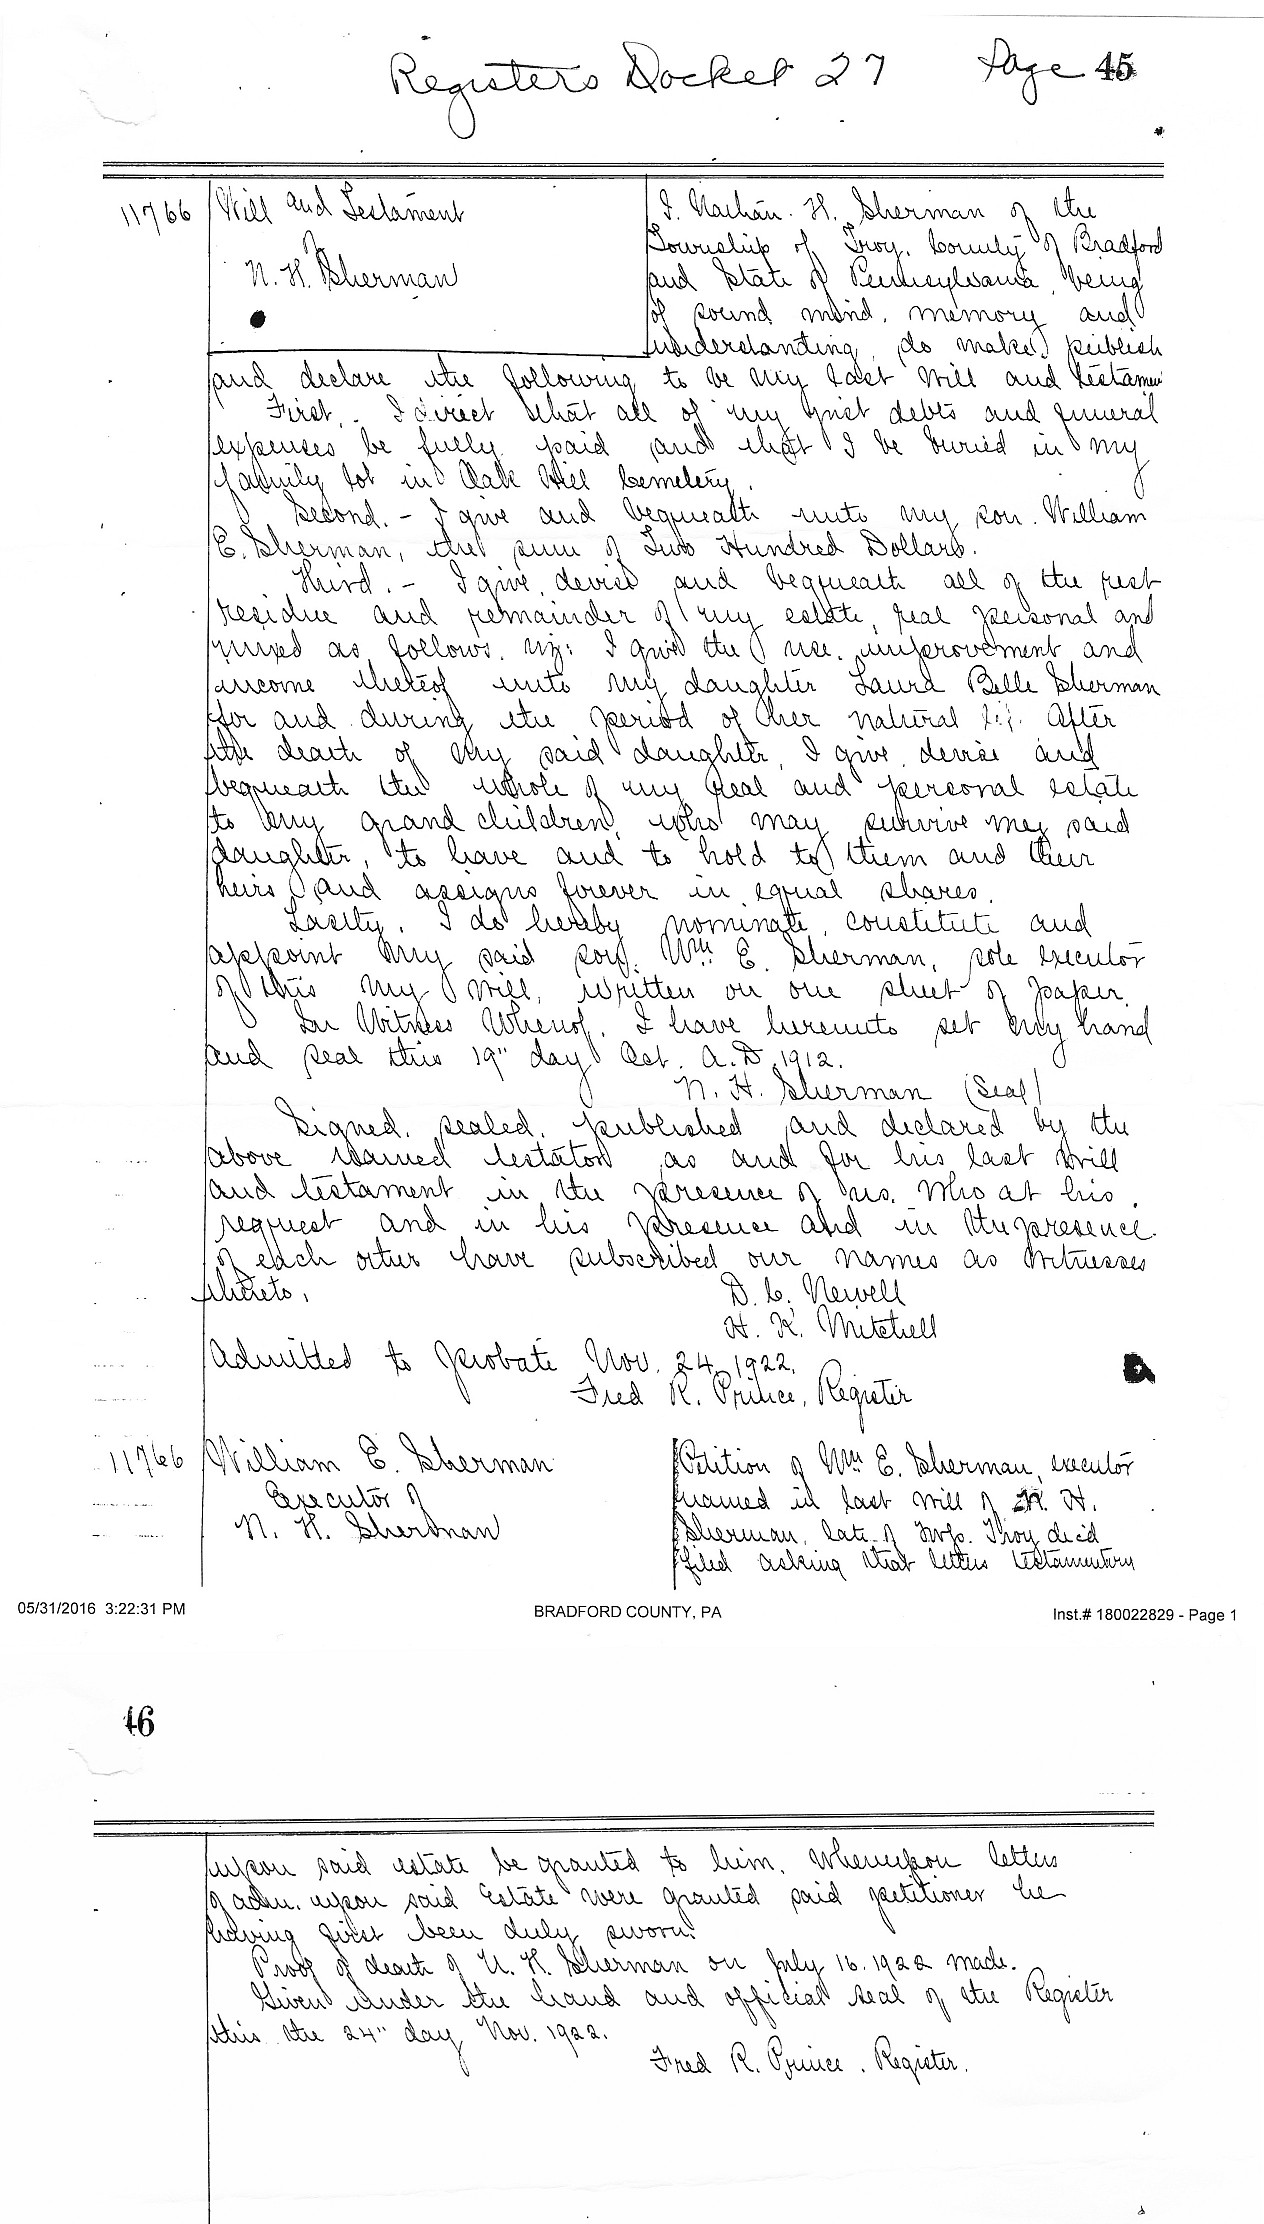 Registers Docket 27 Page 45
11766 Will and Testament
of
N. H. Sherman
I. Nathan. H. Sherman of the
Township of Troy, County of Bradford
and State of Pennsylvania, being
of sound mind, memory and
understanding, do make, publish
and declare the following to be my last Will and testament
First. - I direct that all of my just debts and funeral
expenses be fully paid and that I be buried in my
family lot in Oak Hill Cemetery.
Second. - I give and bequeath unto my son. William
E. Sherman, the sum of Two Hundred Dollars.
Third. - I give, devise and bequeath all of the rest
residue and remainder of my estate, real personal and
mixed as follows. viz: I give the use, improvement and
income thereof unto my daughter Laura Belle Sherman
for and during the period of her natural life. After
the death of my said daughter, I give, devise and
bequeath the whole of my real and personal estate
to my grand children, who may survive my said
daughter, to have and to hold to them and their
heirs and assigns forever in equal shares.
Lastly, I do hereby nominate, constitute and
appoint my said son, Wm E. Sherman, sole executor
of this my will, written on one sheet of paper.
In Witness Whereof, I have hereunto set my hand
and seal this 19" day Oct. A.D. 1912.
N. H. Sherman (Seal)
Signed, sealed, published and declared by the
above named testator as and for his last will
and testament in the presence of us, Who at his
request and in his presence and in the presence
of each other have subscribed our names as witnesses
thereto.
D. C. Newell
H. K. Mitchell
Admitted to probate Nov. 24, 1922.
Fred R. Prince, Register
11766 William E. Sherman
Executor of
N. H. Sherman
Petition of Wm E. Sherman, executor
named in last will of N. H.
Sherman, late of Twp. Troy dec'd
filed asking that letters testamentary
05/31/2016 3:22:31 PM BRADFORD COUNTY, PA Inst.# 180022829 - Page 1
46
upon said estate be granted to him. Whereupon letters
of adm. upon said Estate were granted said petitioner he
having first been duly sworn.
Proof of death of N. H. Sherman on July 16, 1922 made.
Given under the hand and official seal of the Register
this the 24" day Nov. 1922.
Fred R. Prince. Register.